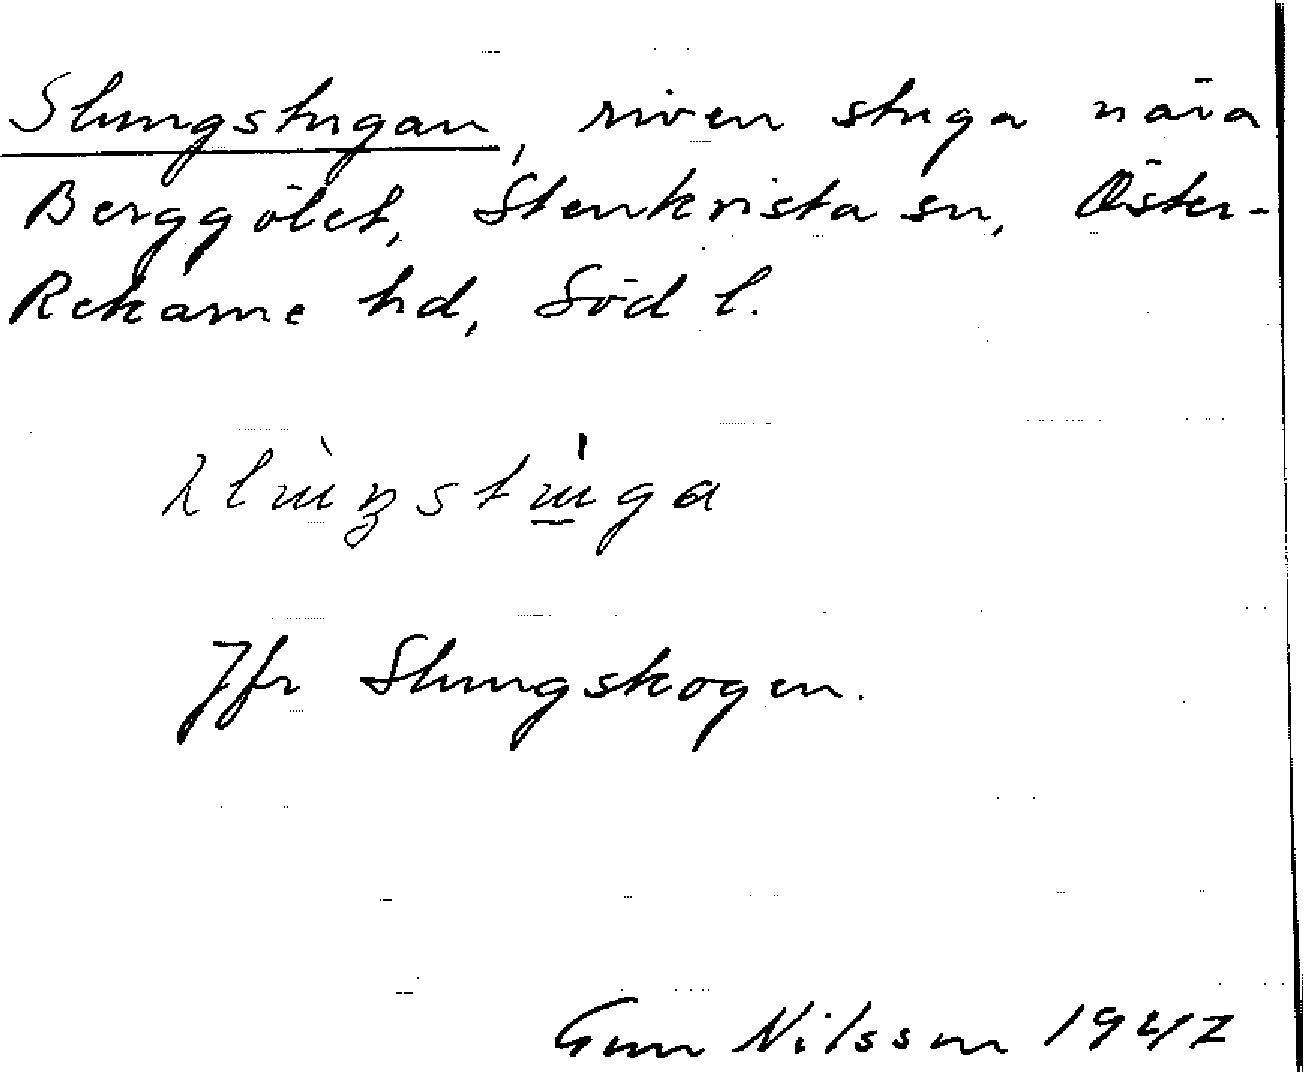 Slungstugan, riven stuga nära
Berggölet, Stenkvista sn, Öster-
Rekarne hd, Söd l.
Jfr Slungskogen.
Gun Nilsson 1942